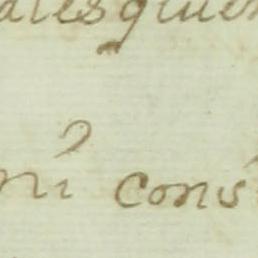 alesquier
ni cons